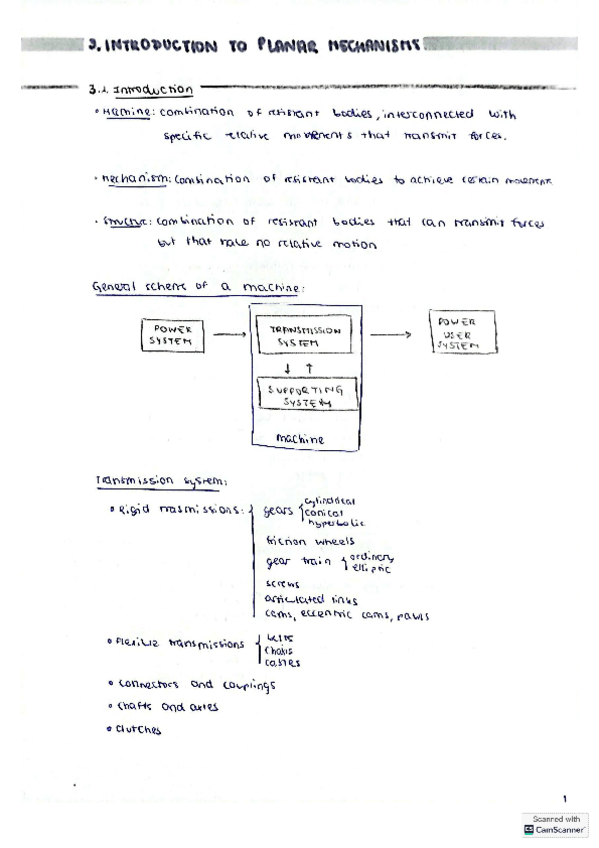 3. INTRODUCTION TO PLANAR MECHANISMS.
3.1. Introduction
• Machine: combination of resistant bodies, interconnected with
specific relative movements that transmit forces.
• Mechanism: combination of resistant bodies to achieve certain movement
• Structure: combination of resistant bodies that can transmit forces
but that have no relative motion
General scheme of a machine:
POWER SYSTEM
TRANSMISSION SYSTEM
POWER USER SYSTEM
SUPPORTING SYSTEM
machine
Transmission system:
• Rigid trasmissions: gears cylindrical
conical
hyperbolic
friction wheels
gear train ordinary
elliptic
screws
articulated links
cams, eccentric cams, pawls
• Flexible transmissions belts
chains
cables
• Connectors and couplings
• Chafts and axles
• Clutches
1
Scanned with
CamScanner